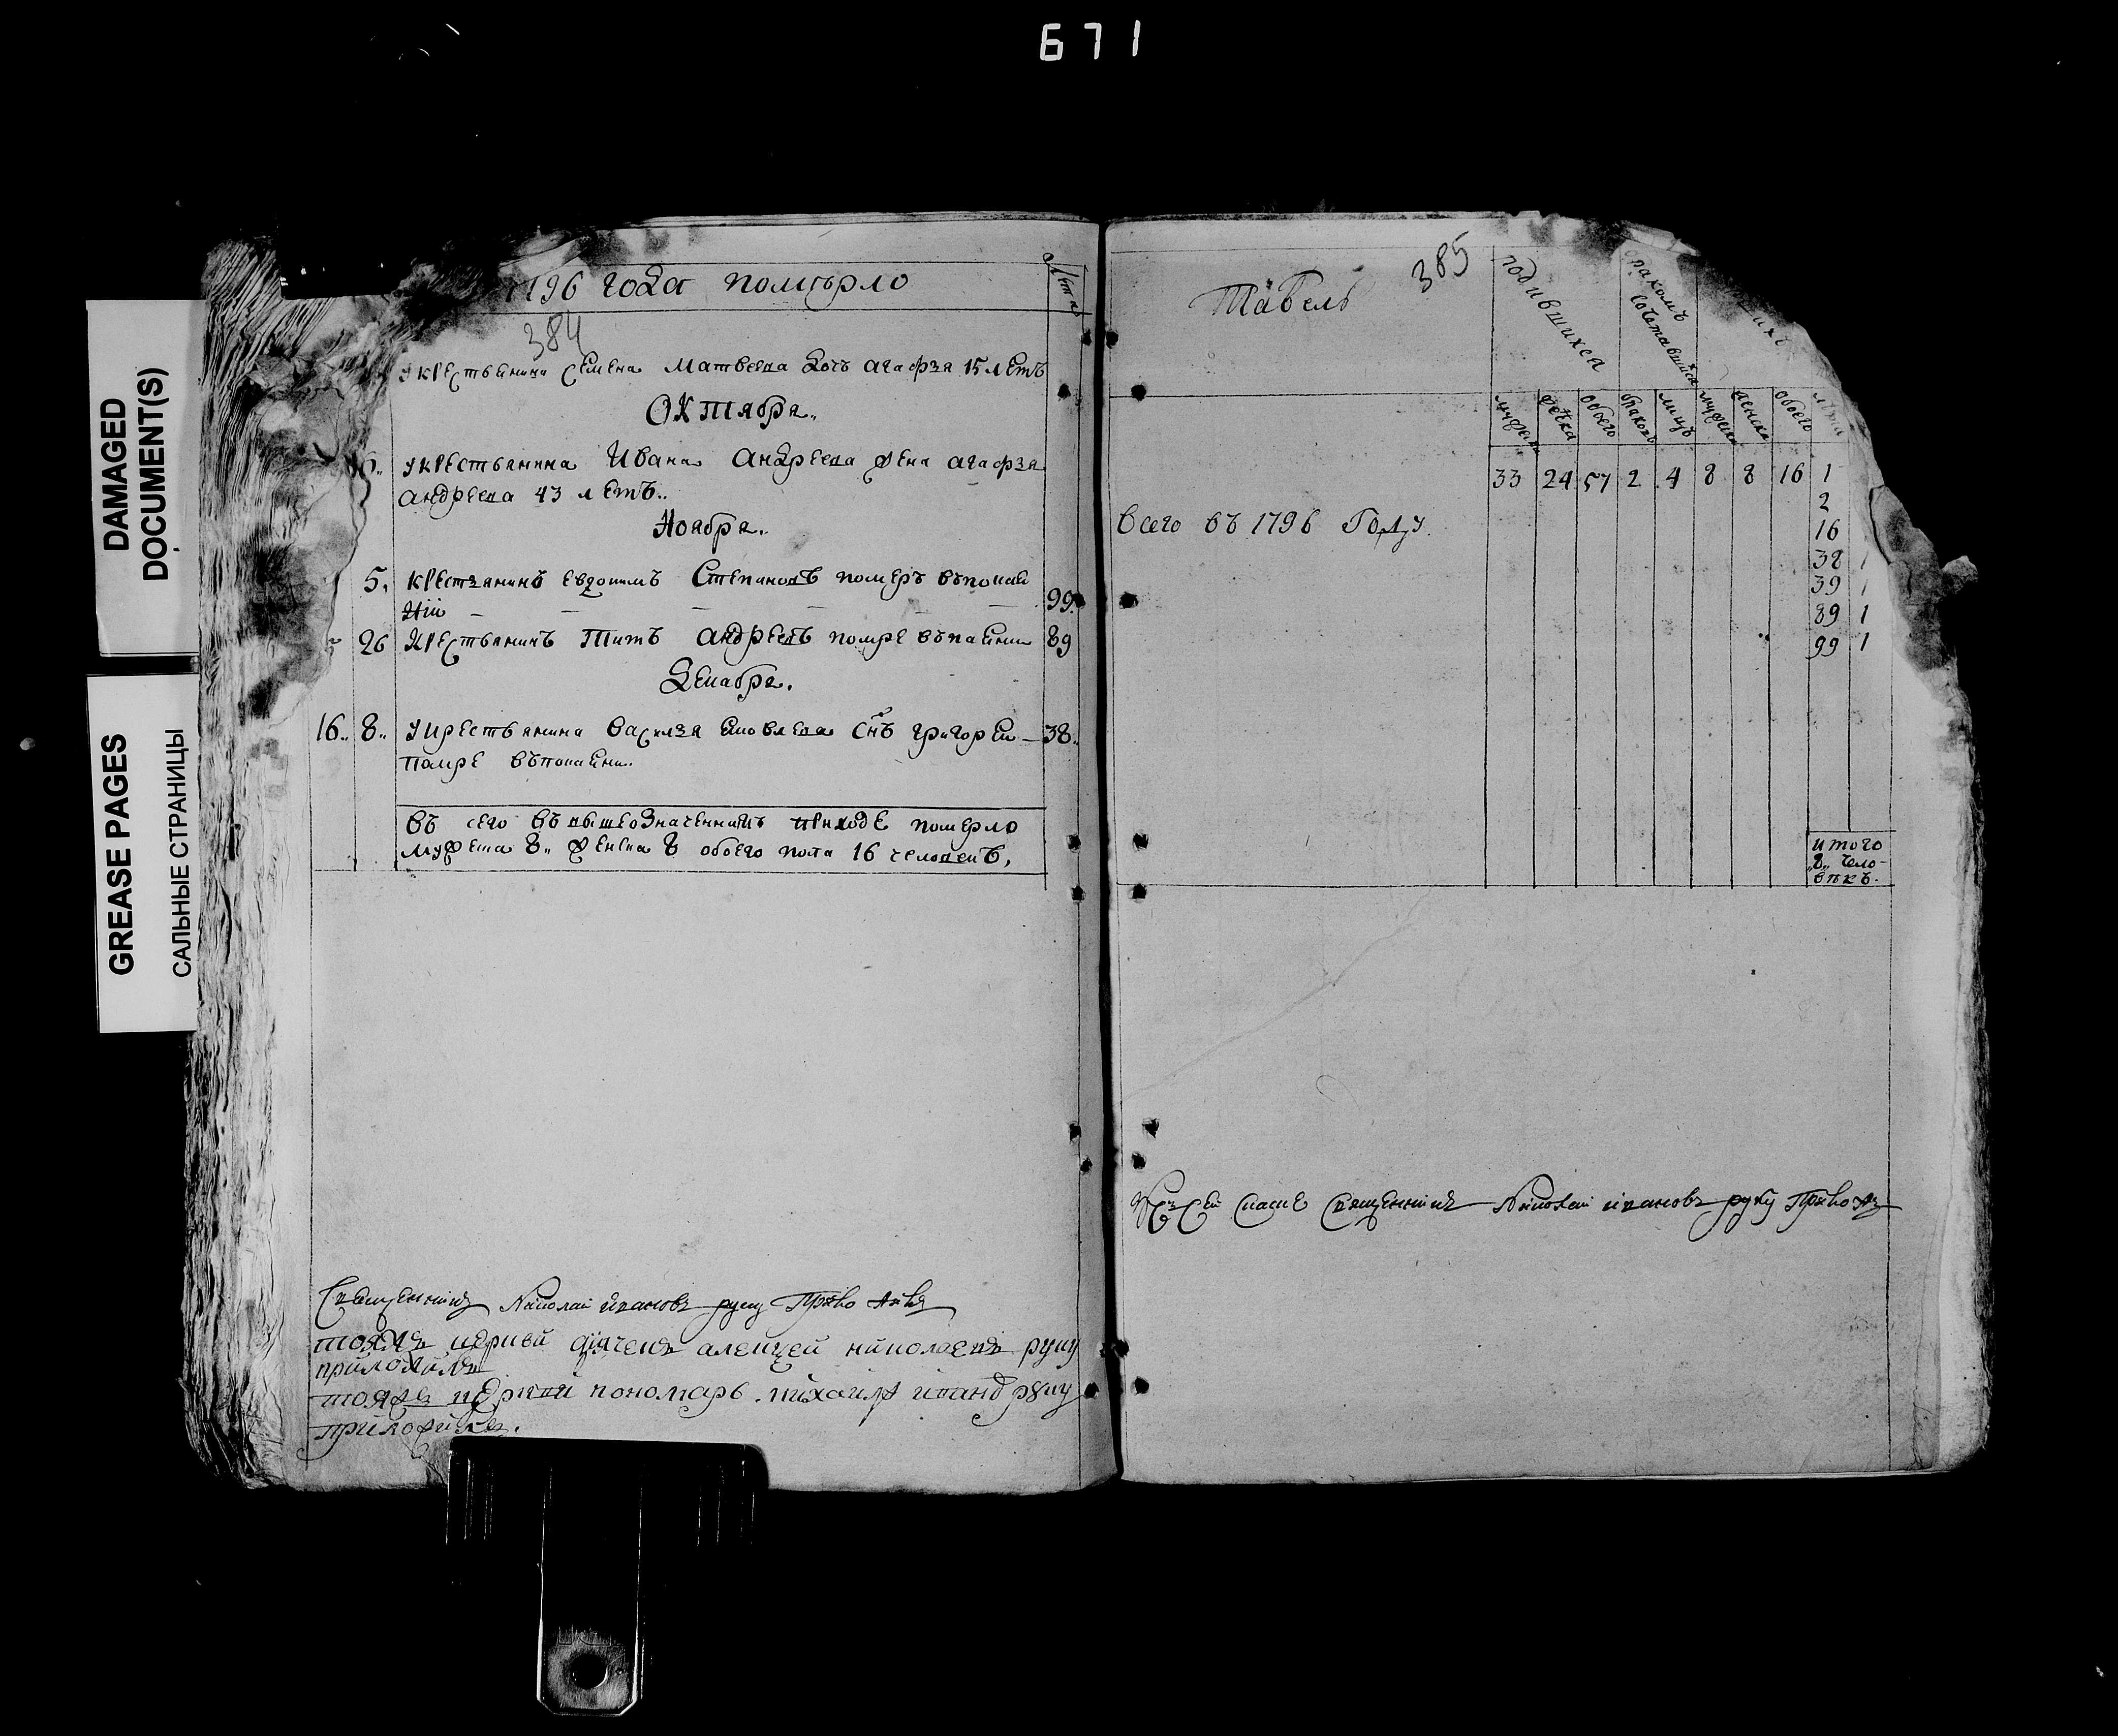 671
DAMAGED
DOCUMENT(S)
GREASE PAGES
САЛЬНЫЕ СТРАНИЦЫ
1796 года померло
лѣта
384
у крестьянина Семена Матвеева дочь агафья 15 летъ
Октября..
6.. у крестьянина Ивана Андреева жена агафья
андреева 43 летъ..
Ноября..
5. крестьянинъ евдокимъ Степановъ померъ въпокае
ніи 99.
26 крестьянинъ Титъ андреевъ помре въпаении 89
Декабря.
16.. 8.. у крестьянина Василья Яковлева снъ григореи 38.
помре въпокаении..
въ сего въ вышеозначеннаиъ приходе померло
мужеска 8.. женска 8 обоего пола 16 человекъ,
Священникъ Николай ивановъ руку приложилъ
тояжъ церкви дьячекъ алекцей николаевъ руку
приложилъ
тояжъ церкви пономарь михаилъ иванов руку
приложилъ.
Табель
385
родившихся
бракомъ
сочетавшихся
мужеска женска обоего браковъ лицъ мужеска женска обоего лѣта
33 24 57 2 4 8 8 16 1
2
Всего въ 1796 Году.
16
38 1
39 1
89 1
99 1
итого
„8„ чело-
вѣкъ.
Священникъ Николай ивановъ руку приложилъ